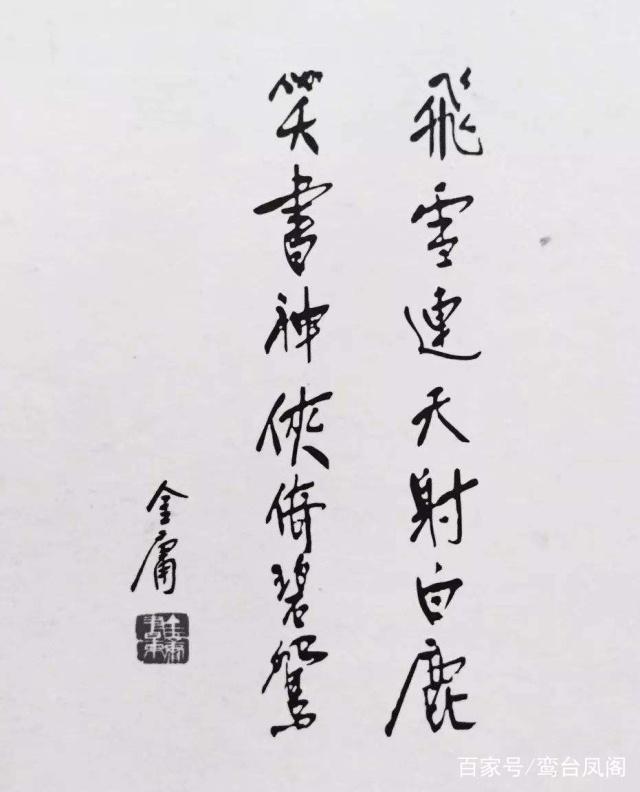 飛雪連天射白鹿
笑書神俠倚碧鴛
金庸
百家号/鸾台凤阁